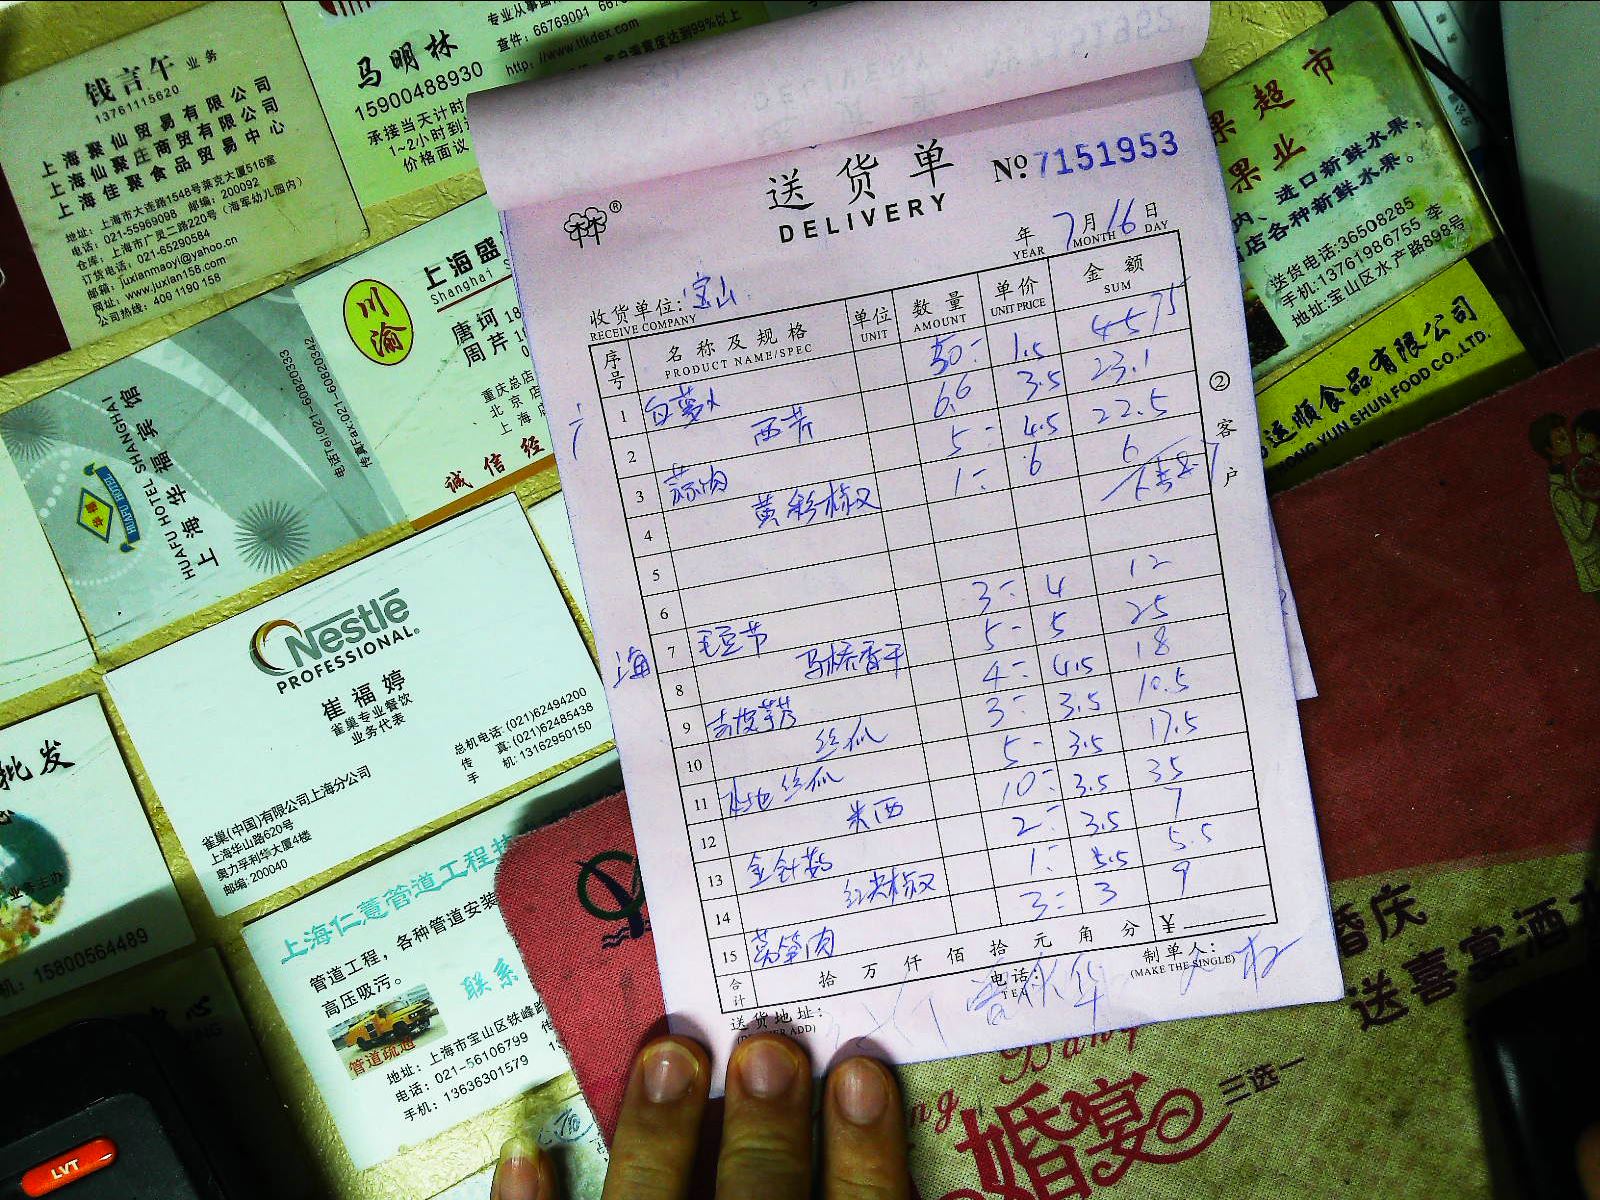 钱言午 业务
13761115620
上海聚仙贸易有限公司
上海仙聚庄商贸有限公司
上海佳聚食品贸易中心
地址：上海市大连路1548号莱克大厦516室
电话：021-55969098 邮编：200092
仓库：上海市广灵二路220号（海军幼儿园内）
订货电话：021-65290584
邮箱：juxianmaoyi@yahoo.cn
网址：www.juxian158.com
公司热线：400 1190 158
马明林
15900488930
承接当天计时
1~2小时到
价格面议
查件：66769001
http://www.ttkdex.com
HUAFU HOTEL SHANGHAI
上海华福宾馆
HUAFU HOTEL
电话Tel:021-60820333
传真Fax:021-60820342
川渝
上海盛
Shanghai S
唐珂 18
周芹 1
重庆总店
北京店
上海店
诚信经
Nestlé
PROFESSIONAL
崔福婷
雀巢专业餐饮
业务代表
总机电话:(021)62494200
传 真:(021)62485438
手 机:13162950150
雀巢(中国)有限公司上海分公司
上海华山路620号
奥力孚利华大厦4楼
邮编: 200040
批发
业务主办
机：15800564489
上海仁薏管道工程
管道工程，各种管道安装
高压吸污。
联系
管道疏通
地址：上海市宝山区铁峰路
电话：021-56106799
手机：13636301579
LVT
送货单
DELIVERY
№ 7151953
年 7月16日
YEAR MONTH DAY
收货单位：宝山
RECEIVE COMPANY
序号 名称及规格 单位 数量 单价 金额
PRODUCT NAME/SPEC UNIT AMOUNT UNIT PRICE SUM
1 白萝卜 30 1.5 45
2 西芹 6.6 3.5 23.1
3 蒜肉 5 4.5 22.5
4 黄彩椒 1 6 6
5
6
7 毛豆节 3 4 12
8 马桥香干 5 5 25
9 去皮芋艿 4 4.5 18
10 丝瓜 3 3.5 10.5
11 本地丝瓜 5 3.5 17.5
12 米西 10 3.5 35
13 金针菇 2 3.5 7
14 红尖椒 1 5.5 5.5
15 莴笋肉 3 3 9
合计 拾 万 仟 佰 拾 元 角 分 ¥
送货地址：
电话：
TEL
制单人：
(MAKE THE SINGLE)
② 客户
上海
果超市
果业
内、进口新鲜水果，
店各种新鲜水果。
送货电话:36508285
手机:13761986755 李
地址:宝山区水产路898号
运顺食品有限公司
YONG YUN SHUN FOOD CO.,LTD.
婚庆
送喜宴酒水
三选一
婚宴